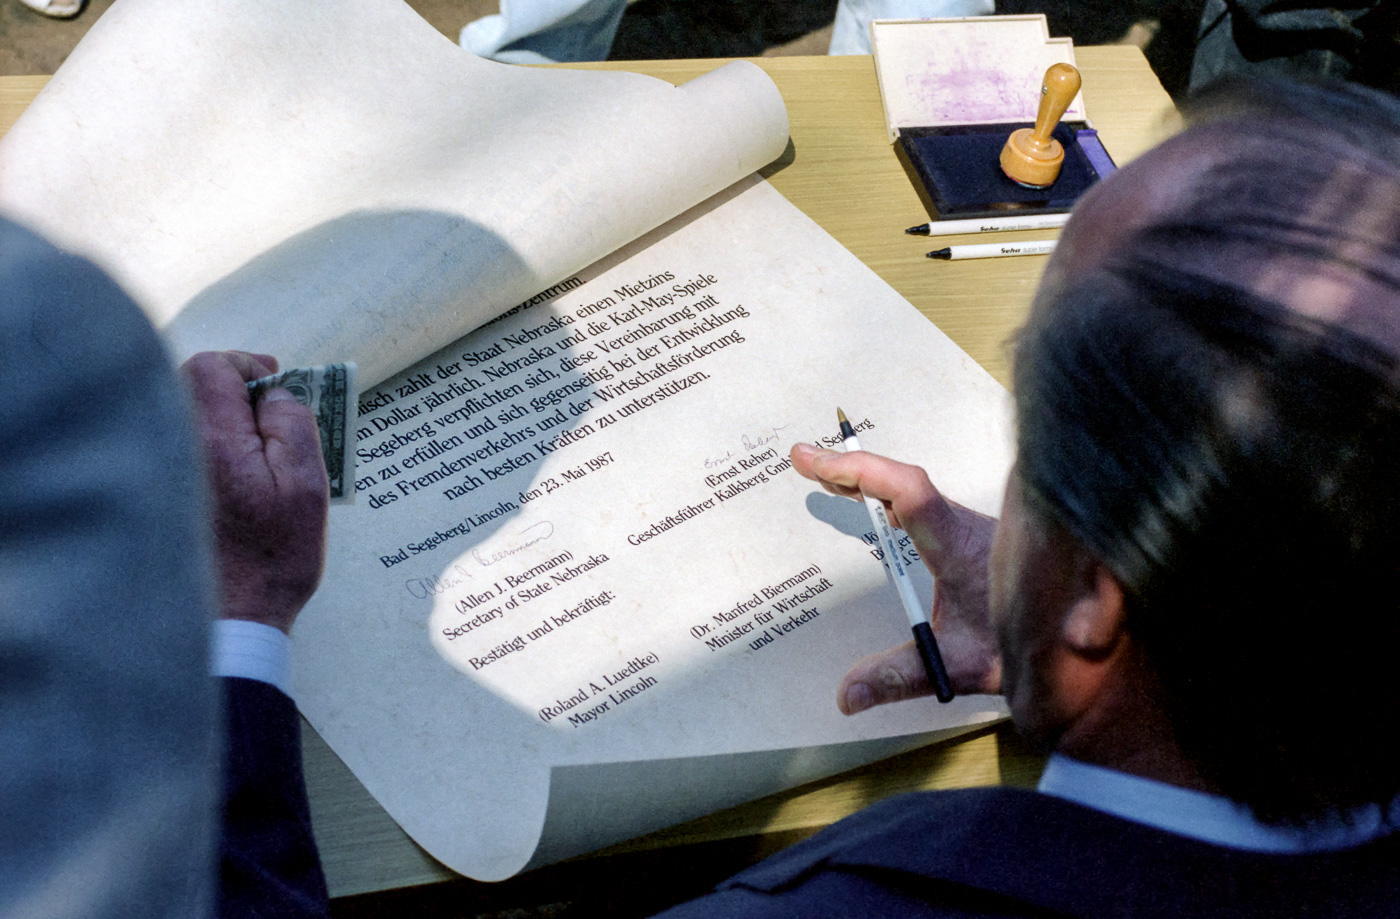 Zentrum.
zahlt der Staat Nebraska einen Mietzins
Dollar jährlich. Nebraska und die Karl-May-Spiele
Segeberg verpflichten sich, diese Vereinbarung mit
zu erfüllen und sich gegenseitig bei der Entwicklung
des Fremdenverkehrs und der Wirtschaftsförderung
nach besten Kräften zu unterstützen.
Bad Segeberg/Lincoln, den 23. Mai 1987
Allen J Beermann
(Allen J. Beermann)
Secretary of State Nebraska
Ernst Reher
(Ernst Reher)
Geschäftsführer Kalkberg GmbH Segeberg
Bestätigt und bekräftigt:
(Roland A. Luedtke)
Mayor Lincoln
(Dr. Manfred Biermann)
Minister für Wirtschaft
und Verkehr
Seha
Seha